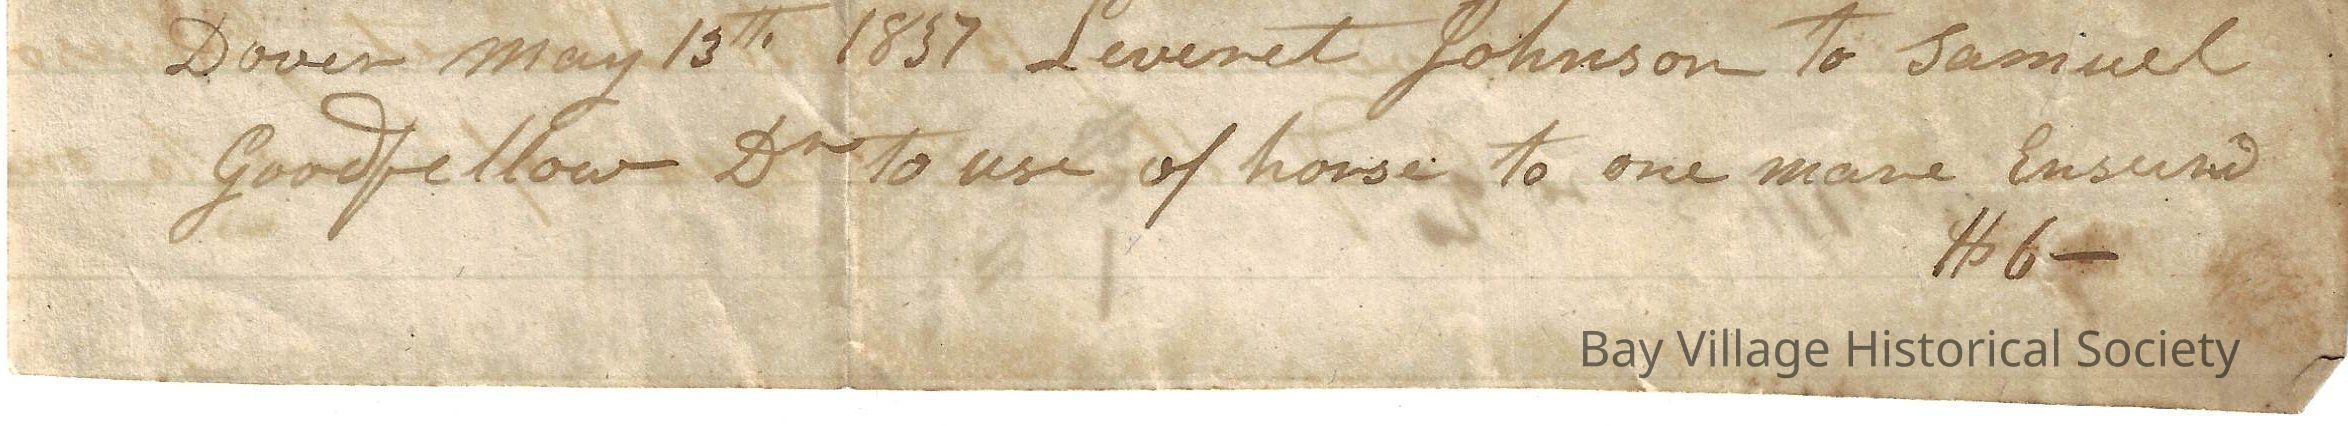 Dover May 13th 1837 Leveret Johnson to Samuel
Goodfellow Dr to use of horse to one mare Ensurd
$6—
Bay Village Historical Society